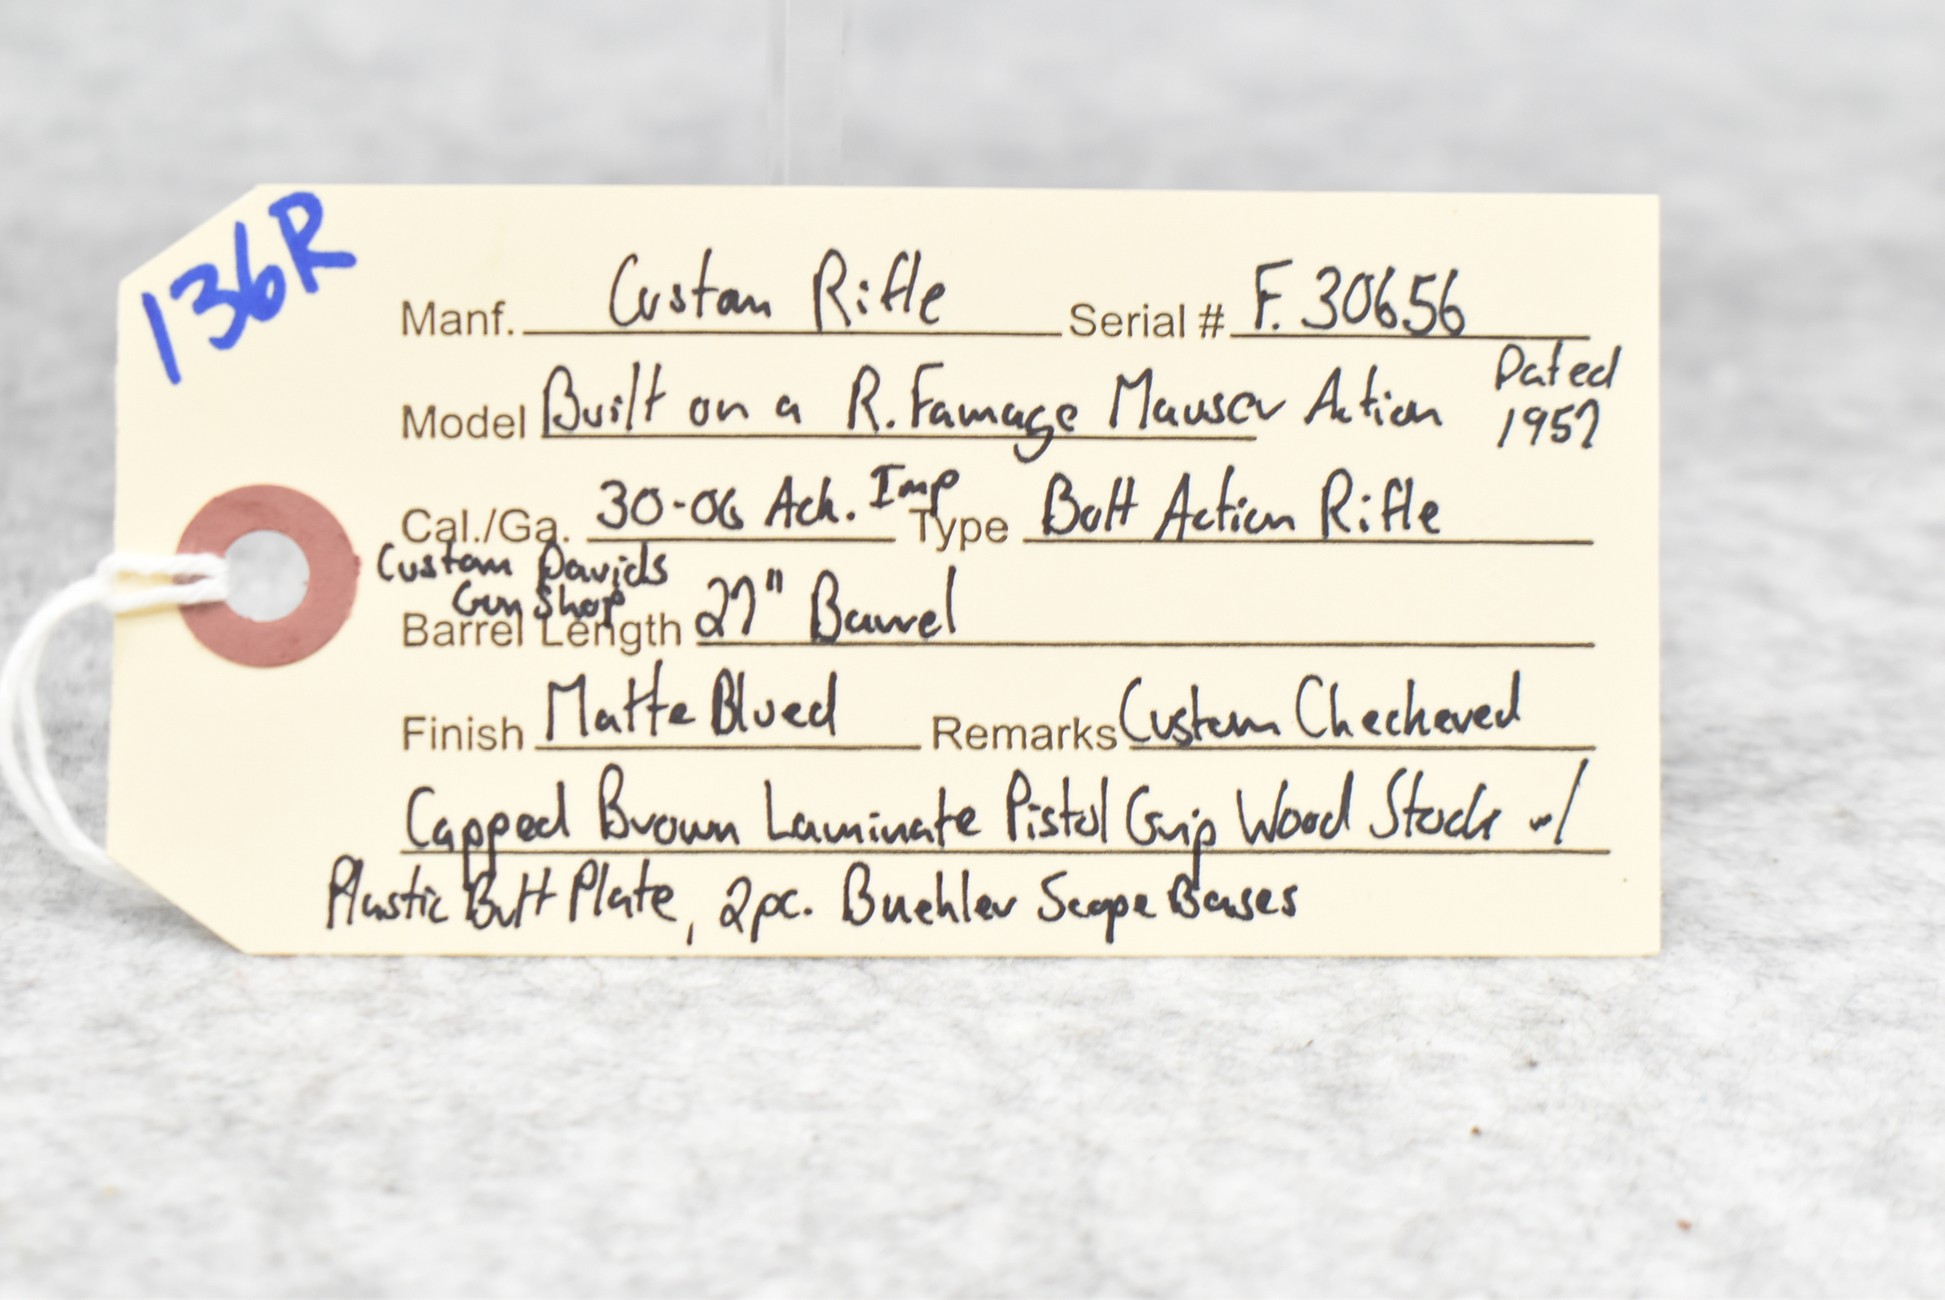 136R
Manf. Custom Rifle Serial # F. 30656
Model Built on a R. Famage Mauser Action Dated 1957
Cal./Ga. 30-06 Ack. Imp Type Bolt Action Rifle
Custom Davids
Gun Shop
Barrel Length 27" Barrel
Finish Matte Blued Remarks Custom Checkered
Capped Brown Laminate Pistol Grip Wood Stock w/
Plastic Butt Plate, 2pc. Buehler Scope Bases